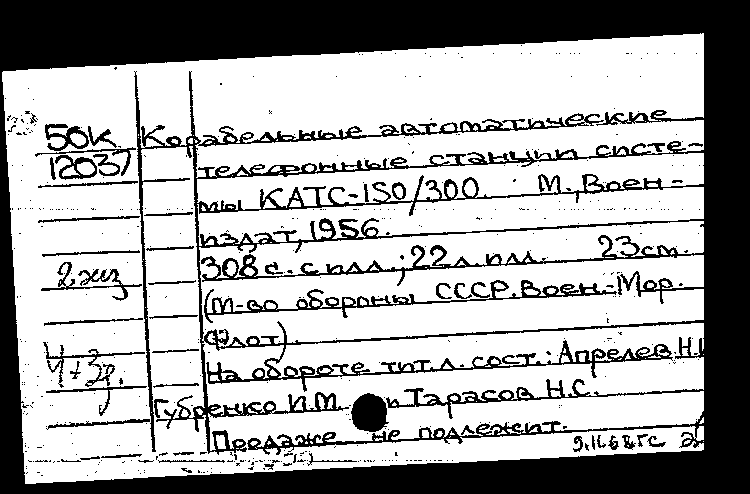 50К Корабельные автоматические
12037 телефонные станции систе-
мы КАТС-150/300. М., Воен-
издат, 1956.
2 экз 308 с. с илл.; 22 л. илл. 23 см.
(М-во обороны СССР. Воен.-Мор.
Флот).
Ч+З На обороте тит. л. сост.: Апрелев Н.И
Губренко И.М. и Тарасов Н.С.
Продаже не подлежит.